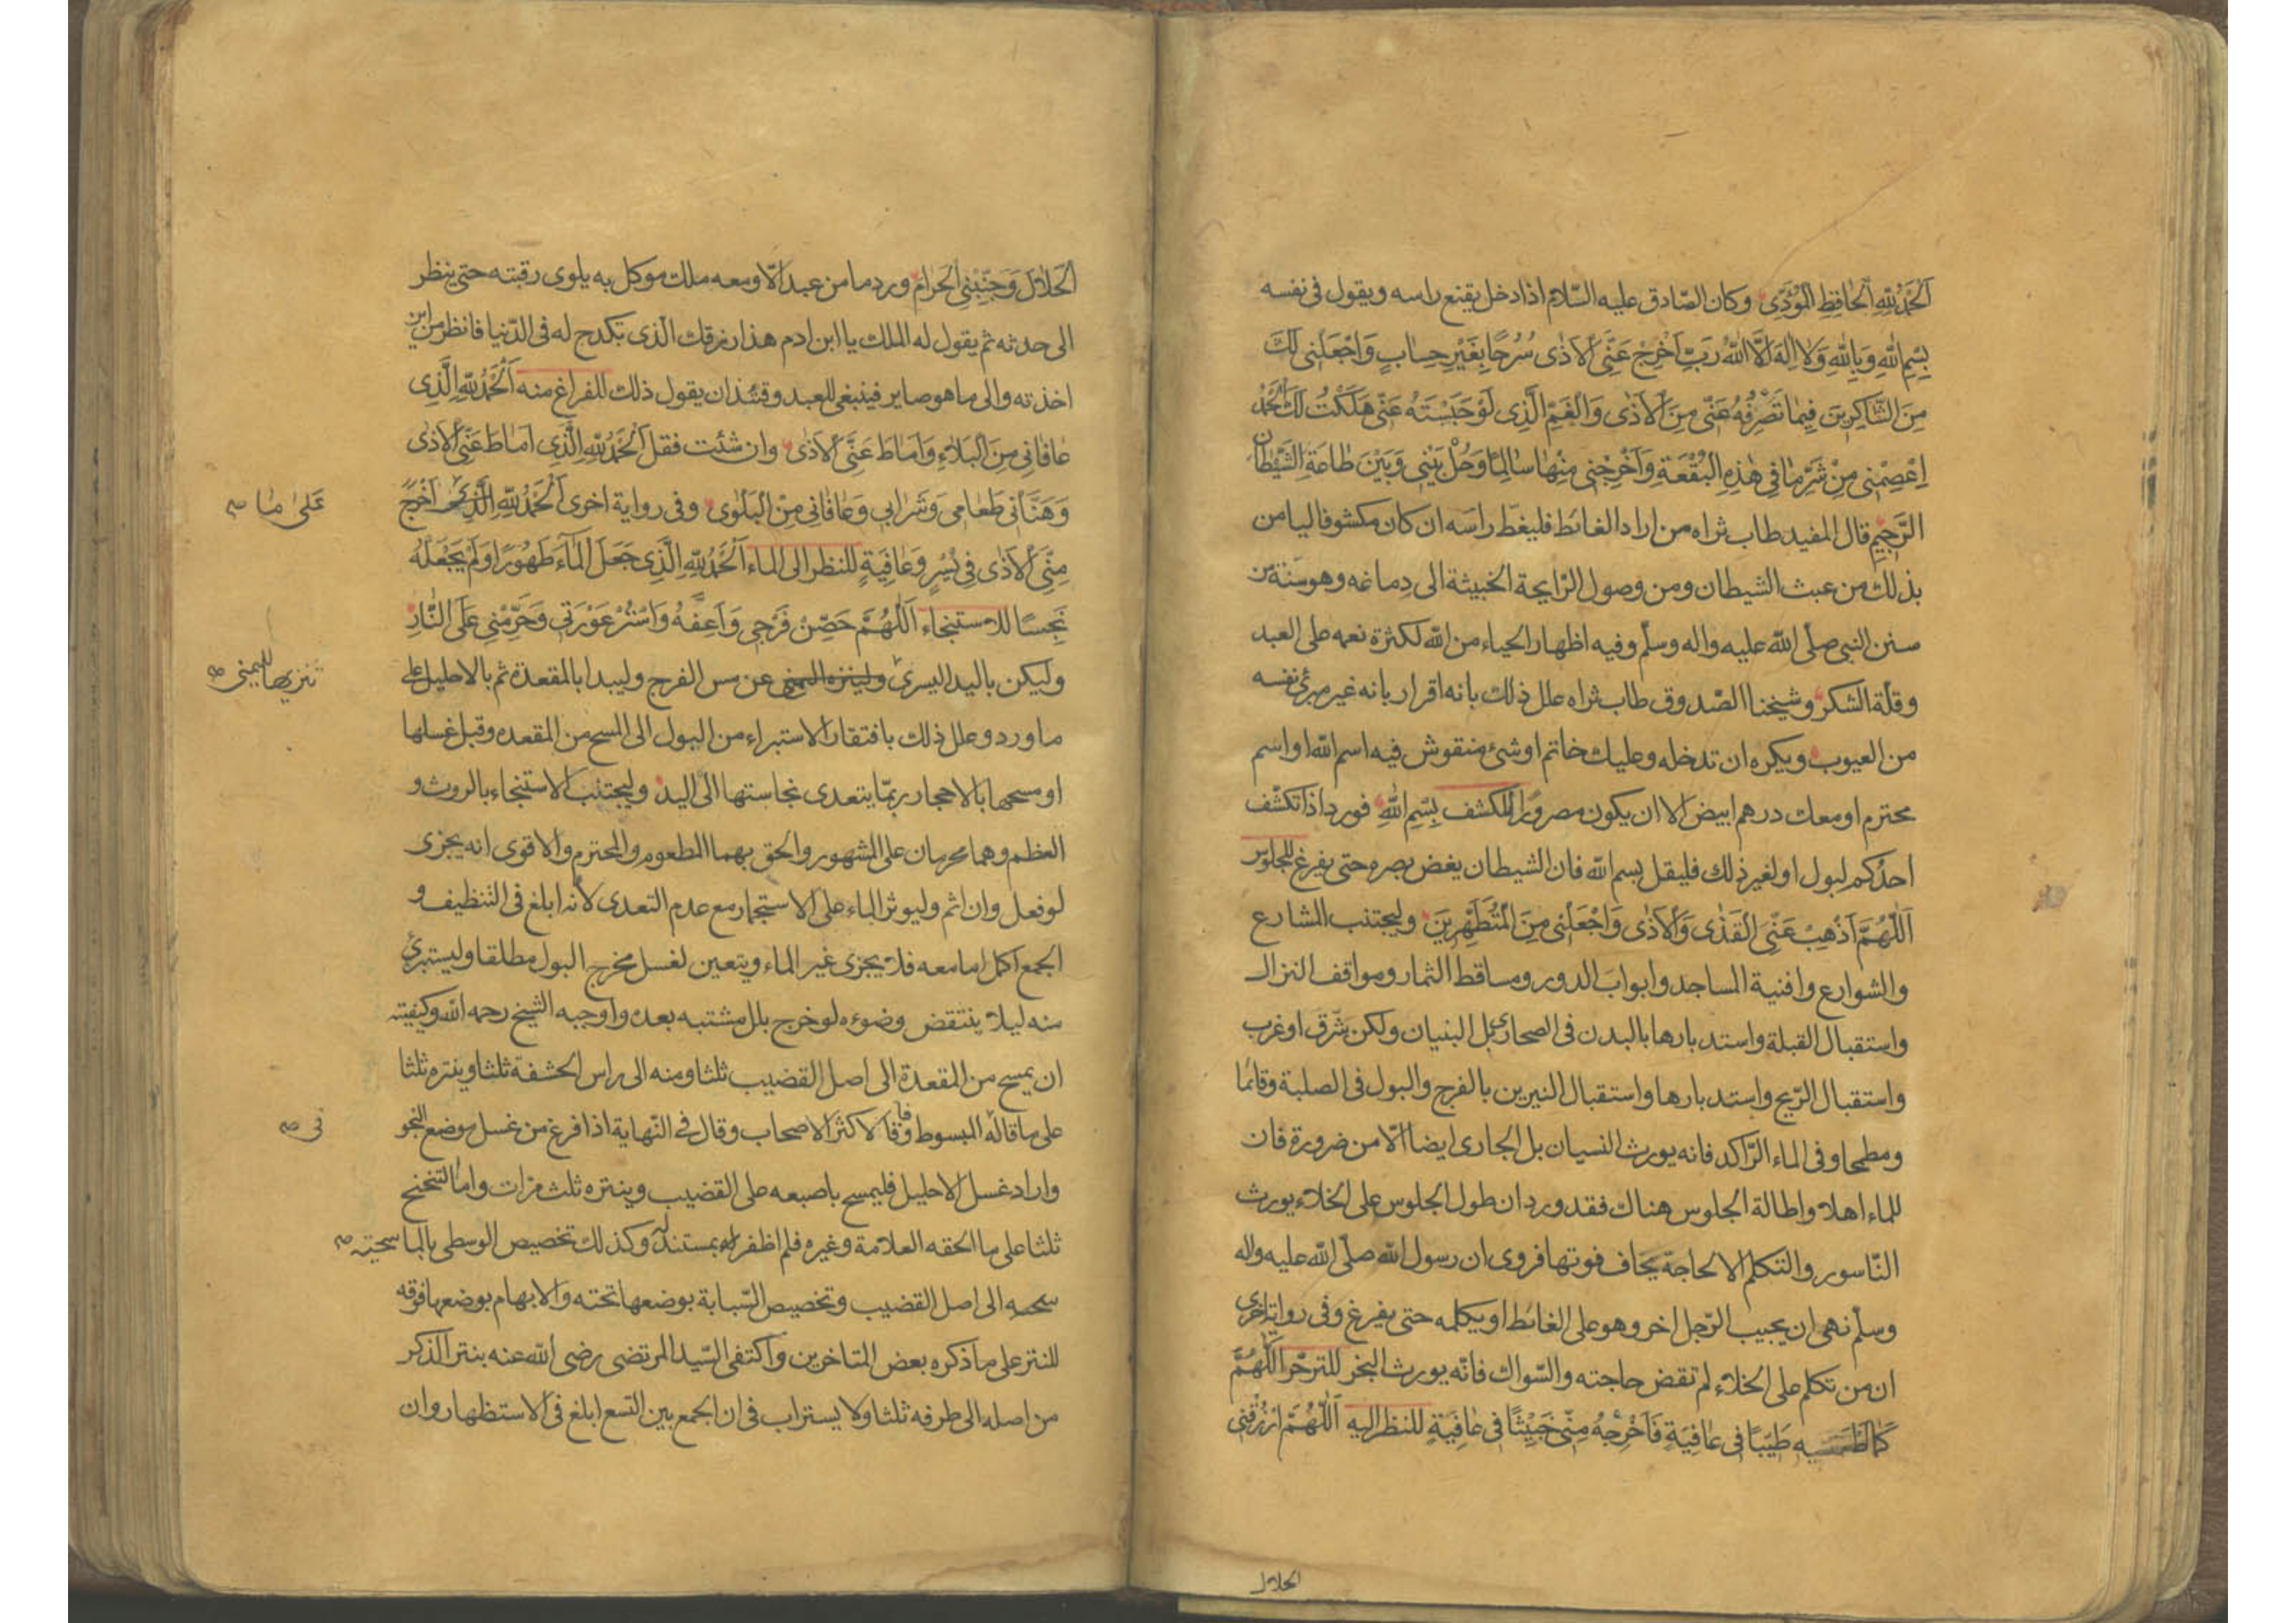 اَلْحَمْدُ لِلّٰهِ الْحَافِظِ الْمُؤَدِّى وكان الصّادق عليه السّلام اذا دخل يقنع راسه ويقول فى نفسه
بِسْمِ اللهِ وَبِاللهِ وَلَا اِلٰهَ اِلَّا اللهُ رَبِّ اَخْرِجْ عَنِّى الْاَذٰى سُرُحًا بِغَيْرِ حِسَابٍ وَاجْعَلْنِى لَكَ
مِنَ الشَّاكِرِينَ فِيمَا تَصْرِفُهُ عَنِّى مِنَ الْاَذٰى وَالْغَمِّ الَّذِى لَوْ حَبَسْتَهُ عَنِّى هَلَكْتُ لَكَ الْحَمْدُ
اِعْصِمْنِى مِنْ شَرِّ مَا فِى هٰذِهِ الْبُقْعَةِ وَاَخْرِجْنِى مِنْهَا سَالِمًا وَحُلْ بَيْنِى وَبَيْنَ طَاعَةِ الشَّيْطَانِ
الرَّجِيمِ قال المفيد طاب ثراه من اراد الغائط فليغطّ راسه ان كان مكشوفا ليامن
بذلك من عبث الشيطان ومن وصول الرّايحة الخبيثة الى دماغه وهو سنّة من
سنن النبى صلّى الله عليه واله وسلّم وفيه اظهار الحياء من الله لكثرة نعمه على العبد
وقلّة الشكر وشيخنا الصّدوق طاب ثراه علل ذلك بانه اقرار بانه غير مبرئ نفسه
من العيوب ويكره ان تدخله وعليك خاتم او شئ منقوش فيه اسم الله او اسم
محترم او معك درهم ابيض الا ان يكون مصرورًا للكشف بِسْمِ اللهِ فورد اذا تكشف
احدُكم لبول او لغير ذلك فليقل بسم الله فان الشيطان يغض بصره حتى يفرغ للجلوس
اَللّٰهُمَّ اَذْهِبْ عَنِّى الْقَذٰى وَالْاَذٰى وَاجْعَلْنِى مِنَ الْمُتَطَهِّرِينَ وليجتنب المشارع
والشوارع وافنية المساجد وابواب الدور ومساقط الثمار ومواقف النزال
واستقبال القبلة واستدبارها بالبدن فى الصحارى بل البنيان ولكن شرّق او غرب
واستقبال الرّيح واستدبارها واستقبال النيرين بالفرج والبول فى الصلبة وقائما
ومطمحا وفى الماء الرّاكد فانه يورث النسيان بل الجارى ايضا الّا من ضرورة فان
للماء اهلا واطالة الجلوس هناك فقد ورد ان طول الجلوس على الخلاء يورث
النّاسور والتكلم الا لحاجة يخاف فوتها فروى ان رسول الله صلّى الله عليه واله
وسلّم نهى ان يجيب الرّجل اخر وهو على الغائط او يكلمه حتى يفرغ وفى رواية اخرى
ان من تكلم على الخلاء لم تقض حاجته والسّواك فانّه يورث البخر للترحّر اَللّٰهُمَّ
كَمَا طَيِّبًا فِى عَافِيَةٍ فَاَخْرِجْهُ مِنِّى خَبِيْثًا فِى عَافِيَةٍ للنظر اليه اَللّٰهُمَّ ارْزُقْنِى
الحلال
اَلْحَلَالَ وَجَنِّبْنِى الْحَرَامَ ورد ما من عبد الّا ومعه ملك موكل به يلوى رقبته حتى ينظر
الى حدثه ثم يقول له الملك يا ابن ادم هذا رزقك الّذى تكدح له فى الدّنيا فانظر من اين
اخذته والى ما هو صاير فينبغى للعبد وقتئذ ان يقول ذلك للفراغ منه اَلْحَمْدُ لِلّٰهِ الَّذِى
عَافَانِى مِنَ الْبَلَاءِ وَاَمَاطَ عَنِّى الْاَذٰى وان شئت فقل اَلْحَمْدُ لِلّٰهِ الَّذِى اَمَاطَ عَنِّى الْاَذٰى
وَهَنَّاَنِى طَعَامِى وَشَرَابِى وَعَافَانِى مِنَ الْبَلْوٰى وفى رواية اخرى اَلْحَمْدُ لِلّٰهِ الَّذِى اَخْرَجَ
عَلٰى مَا صح
مِنِّى الْاَذٰى فِى يُسْرٍ وَعَافِيَةٍ للنظر الى الماء اَلْحَمْدُ لِلّٰهِ الَّذِى جَعَلَ الْمَاءَ طَهُورًا وَلَمْ يَجْعَلْهُ
نَجِسًا للاستنجاء اَللّٰهُمَّ حَصِّنْ فَرْجِى وَاَعِفَّهُ وَاسْتُرْ عَوْرَتِى وَحَرِّمْنِى عَلَى النَّارِ
وليكن باليد اليسرى ولينزه اليمنى عن مس الفرج وليبدا بالمقعدة ثم بالاحليل على
تنزيها لليمنى صح
ما ورد وعلل ذلك بافتقار الاستبراء من البول الى المسح من المقعده وقبل غسلها
او مسحها بالاحجار ربمّا يتعدى نجاستها الى اليد وليجتنب الاستنجاء بالروث و
العظم وهما محرمان على المشهور والحق بهما المطعوم والمحترم والاقوى انه يجزى
لو فعل وان اثم وليوثر الماء على الاستجمار مع عدم التعدى لانّه ابلغ فى التنظيف و
الجمع اكمل اما معه فلا يجزى غير الماء ويتعين لغسل مخرج البول مطلقا وليستبرئ
منه ليلا ينتقض وضوءه لو خرج بلل مشتبه بعده واوجبه الشيخ رحمه الله وكيفيته
ان يمسح من المقعدة الى اصل القضيب ثلثا ومنه الى راس الحشفة ثلثا وينتره ثلثا
على ما قاله المبسوط وفاقا لاكثر الاصحاب وقال فى النّهاية اذا فرغ من غسل موضع النجو
فى صح
واراد غسل الاحليل فليمسح باصبعه على القضيب وينتره ثلث مرّات وامّا التنحنح
ثلثا على ما الحقه العلامة وغيره فلم اظفر له بمستند وكذلك تخصيص الوسطى بالمسح
الى اصل القضيب وتخصيص السّبابة بوضعها تحته والابهام بوضعها فوقه
للنتر على ما ذكره بعض المتاخرين واكتفى السّيد المرتضى رضى الله عنه بنتر الذكر
من اصله الى طرفه ثلثا ولا يستراب فى ان الجمع بين التسع ابلغ فى الاستظهار وان